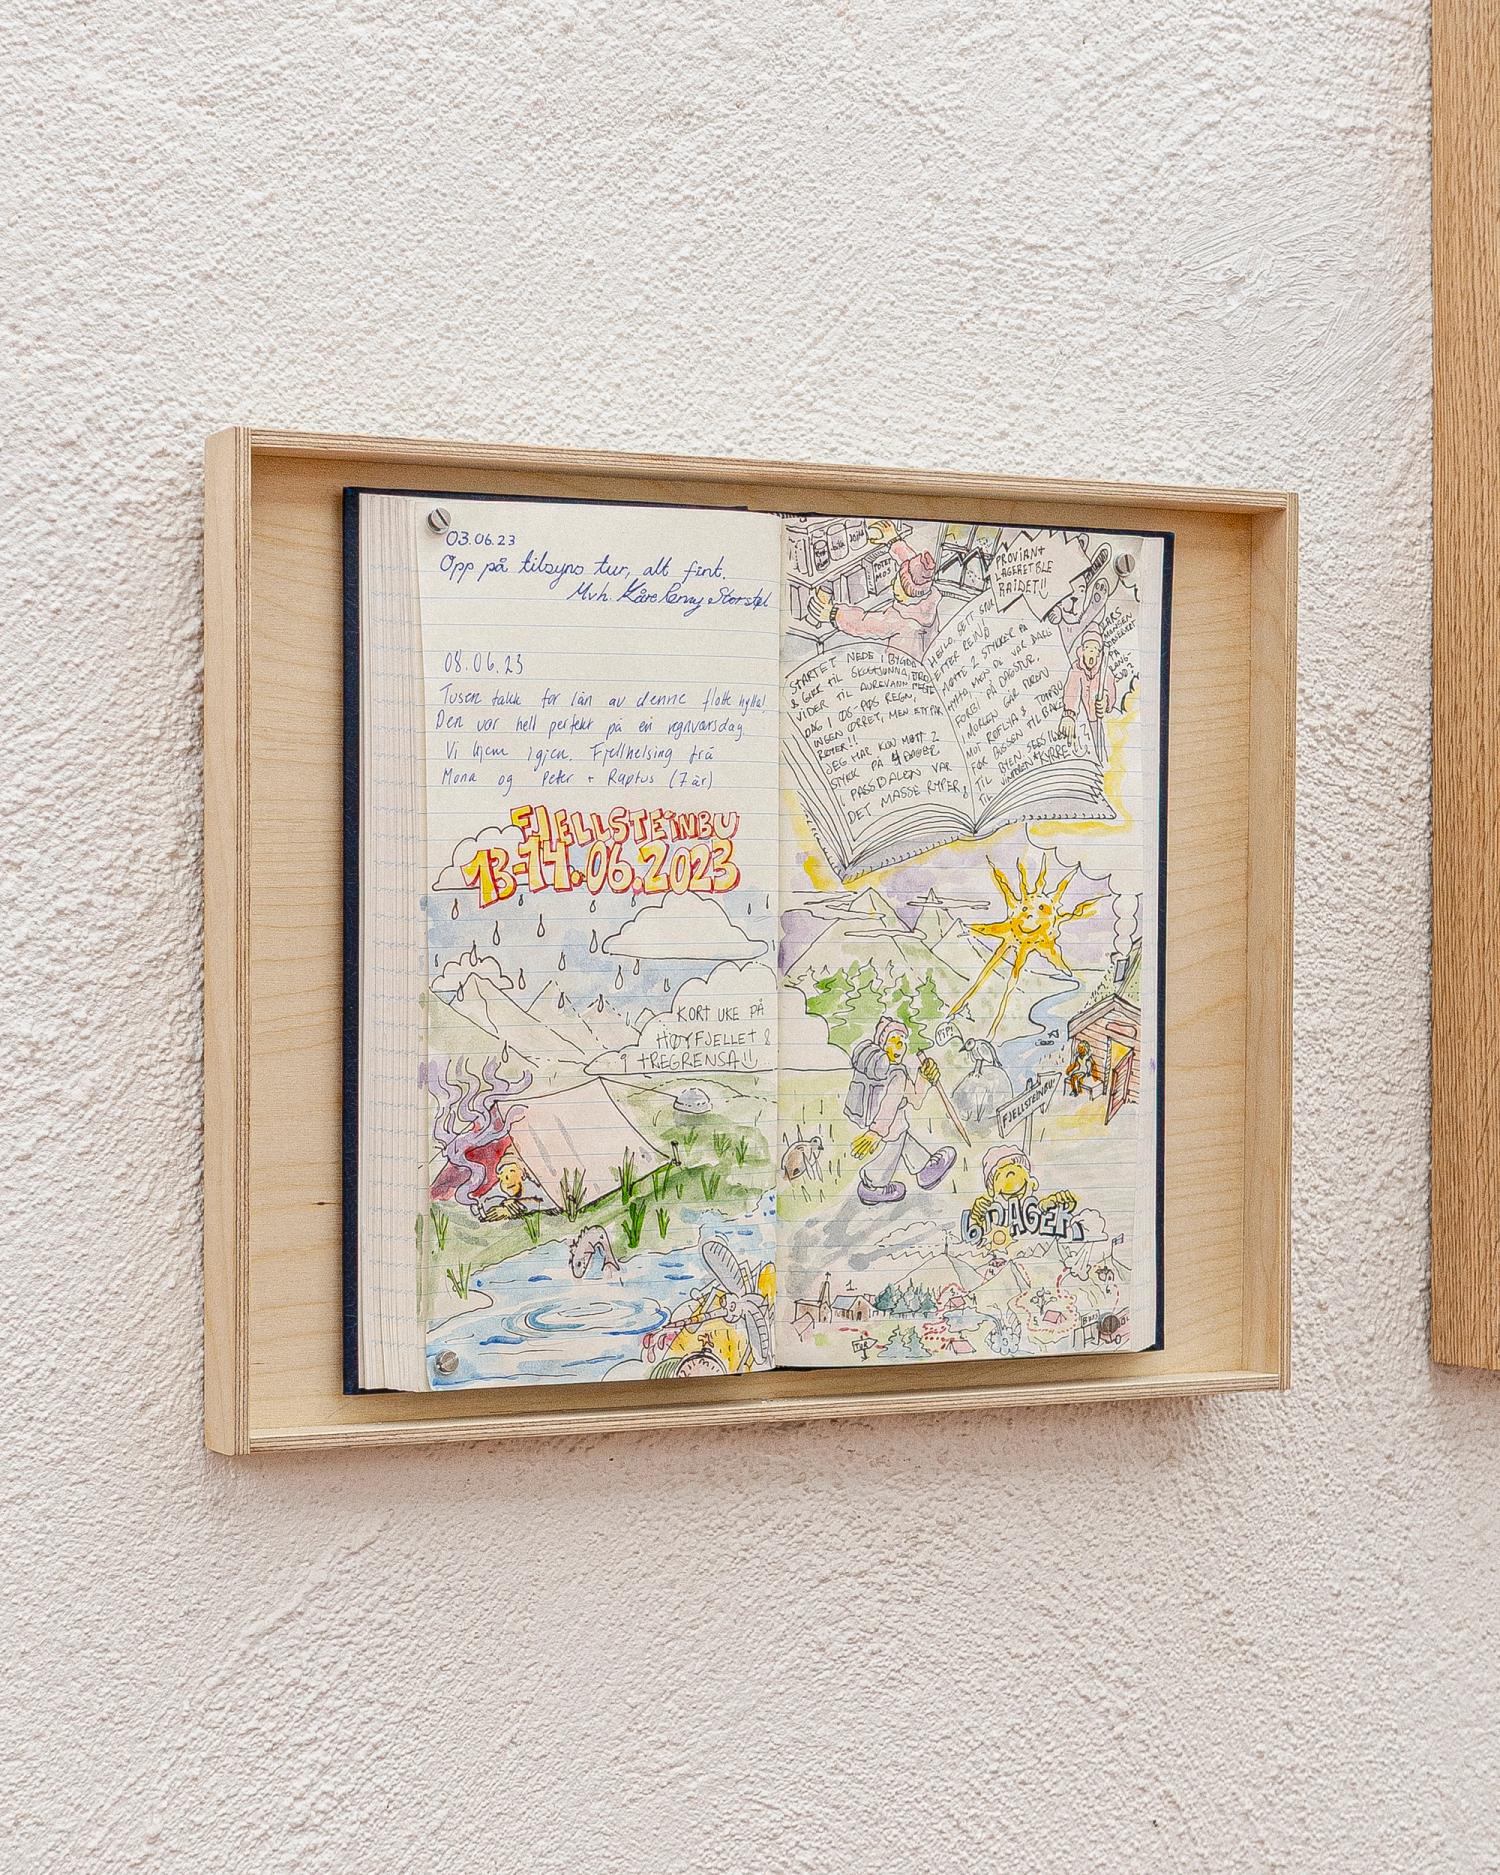 03.06.23
Opp på tilsyns tur, alt fint.
Mvh. Kåre
08.06.23
Tusen takk for lån av denne flotte hytta!
Den var helt perfekt på en regnværsdag.
Vi hjem igjen. Fjellhelsing frå
Mona og Peter + Raptus (7 år)
FJELLSTEINBU
13-14.06.2023
KORT UKE PÅ
HØYFJELLET &
I TREGRENSA!!
PROVIANT
LAGERET BLE
RAIDET!!
LARS
MONSEN
OBSERVERT
PÅ
LANG-
TUR?
STARTET NEDE I BYGDA
& GIKK TIL
VIDER TIL AUREVANN
DAG 1 ØS-PØS REGN,
INGEN ØRRET, MEN ETT PAR
RØYER!!
JEG HAR KUN MØTT 2
STYKK PÅ 4 DAGER
I PASSDALEN VAR
DET MASSE RYPER &
HELLO. SETT SPOR
ETTER REIN
MØTTE 2 STYKKER PÅ
HYTTA, MEN DE VAR BARE
FORBI PÅ DAGSTUR.
I MORGEN GÅR TUREN
MOT RØFLYA & TOMBU
FØR BUSSEN TILBAKE
TIL BYEN. SEES
TIL VINTEREN KYRRE!!
PIP!
FJELLSTEINBU
6 DAGER
1
TUR